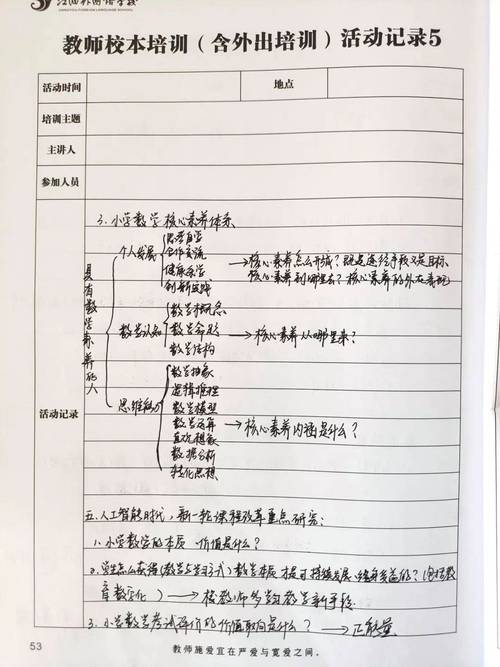 江西外国语学校
教师校本培训（含外出培训）活动记录5
活动时间
地点
培训主题
主讲人
参加人员
活动记录
3.小学数学核心素养体系
具有数学素养的人
个人发展
思考自学
合作交流
创新实践
→核心素养怎么形成？既是途径手段又是目标
核心素养到哪里去？核心素养的外在表现
数学认知
数学概念
数学命题
数学结构
→核心素养从哪里来？
思维能力
数学抽象
逻辑推理
数学模型
数学运算
直观想象
数据分析
转化思想
→核心素养内涵是什么？
五.人工智能时代，新一轮课程改革重点研究：
1.小学数学的本质 价值是什么？
2.学生怎么获得(数学与学习方式)数学本质 提可持续发展、终身受益的？(包括教
育数字化) → 教师多钻教学新手段
3.小学数学考试评价的价值取向是什么？ → 正能量
53
教师施爱宜在严爱与宽爱之间。